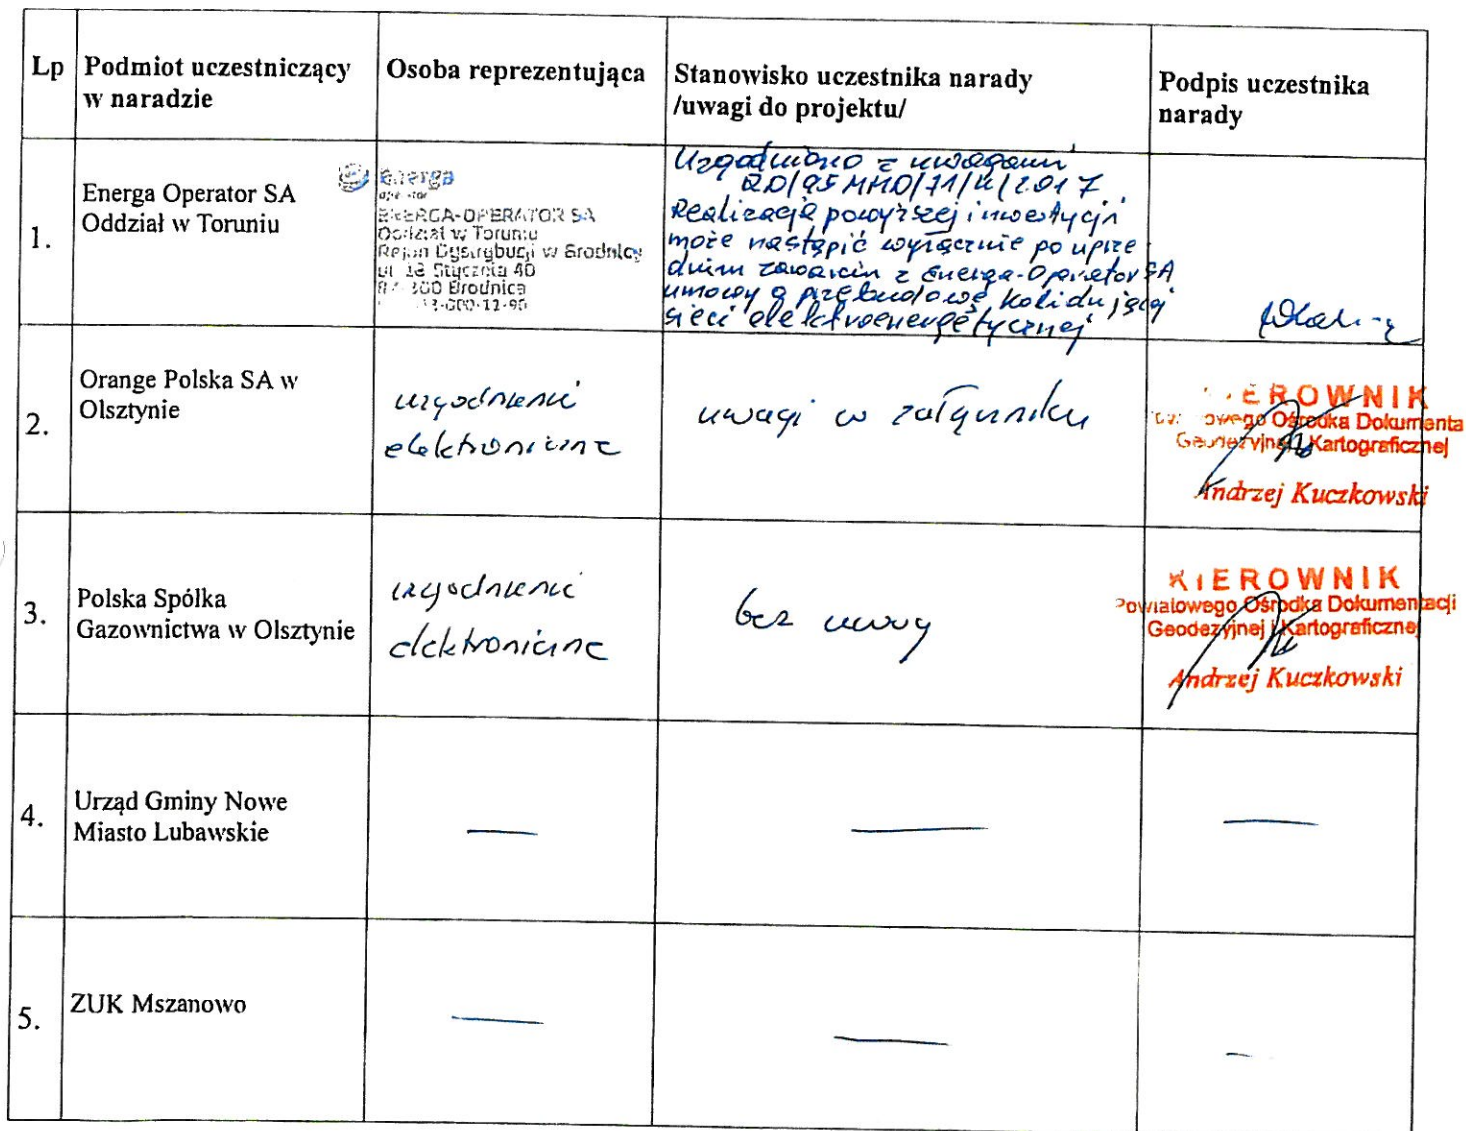 Lp
Podmiot uczestniczący
w naradzie
Osoba reprezentująca
Stanowisko uczestnika narady
/uwagi do projektu/
Podpis uczestnika
narady
1.
Energa Operator SA
Oddział w Toruniu
Energa
operator
ENERGA-OPERATOR SA
Oddział w Toruniu
Rejon Dystrybucji w Brodnicy
ul. 18 Stycznia 40
300 Brodnica
Uzgodniono z uwagami
RD/95MMD/71/K/2017
Realizacja powyższej inwestycji
może nastąpić wyłącznie po uprze
dnim zawarciu z Energa-Operator SA
umowy o przebudowę kolidującej
sieci elektroenergetycznej
2.
Orange Polska SA w
Olsztynie
uzgodnienie
elektroniczne
uwagi w załączniku
KIEROWNIK
owego Ośrodka Dokumenta
Geodezyjnej i Kartograficznej
Andrzej Kuczkowski
3.
Polska Spólka
Gazownictwa w Olsztynie
uzgodnienie
elektroniczne
bez uwag
KIEROWNIK
Powiatowego Ośrodka Dokumentacji
Geodezyjnej i Kartograficznej
Andrzej Kuczkowski
4.
Urząd Gminy Nowe
Miasto Lubawskie
—
—
—
5.
ZUK Mszanowo
—
—
—